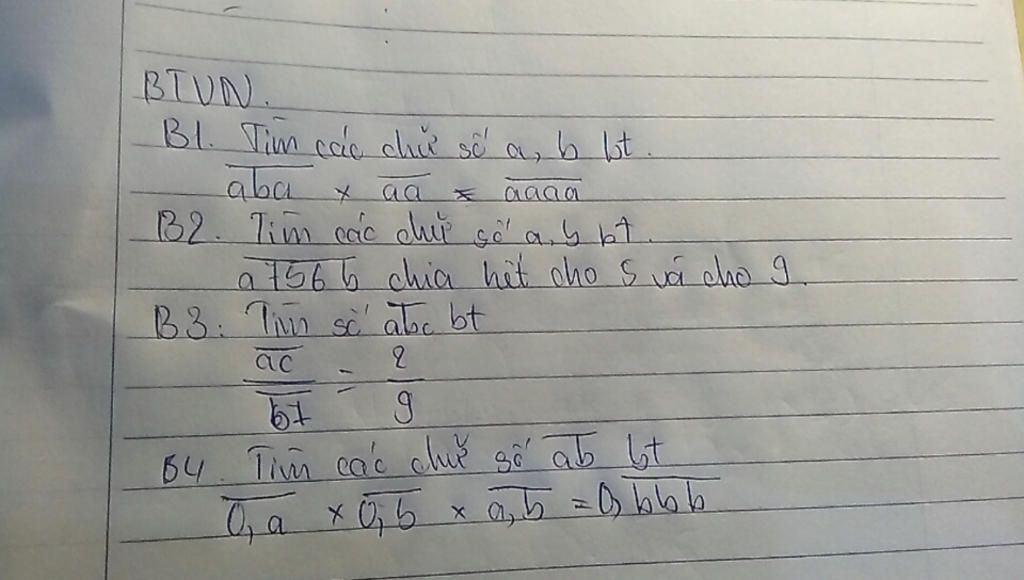 BTVN.
B1. Tìm các chữ số a, b bt.
aba × aa = aaaa
B2. Tìm các chữ số a, b bt.
a756b chia hết cho 5 và cho 9.
B3: Tìm số abc bt
ac = 2
b7 9
B4. Tìm các chữ số ab bt
0,a × 0,b × a,b = 0,bbb